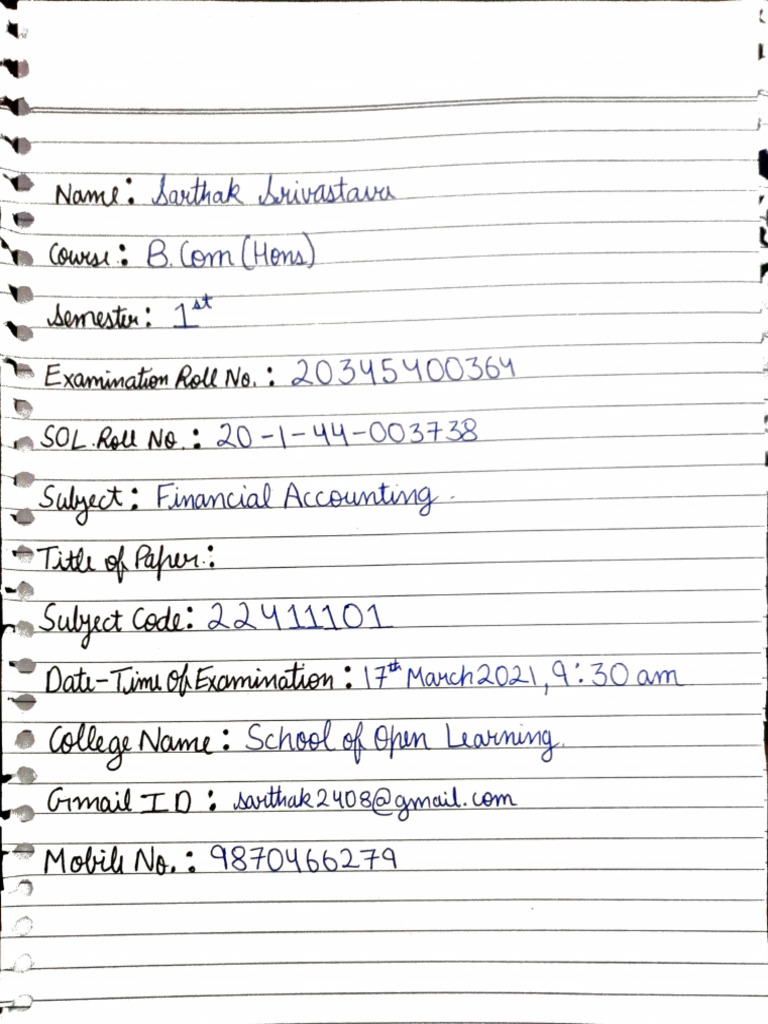 Name: Sarthak Srivastava
Course: B.Com (Hons)
Semester: 1st
Examination Roll No.: 20345400364
SOL Roll No.: 20-1-44-003738
Subject: Financial Accounting.
Title of Paper:
Subject Code: 22411101
Date-Time Of Examination: 17th March 2021, 9:30 am
College Name: School of Open Learning.
Gmail ID: sarthak2408@gmail.com
Mobile No.: 9870466279